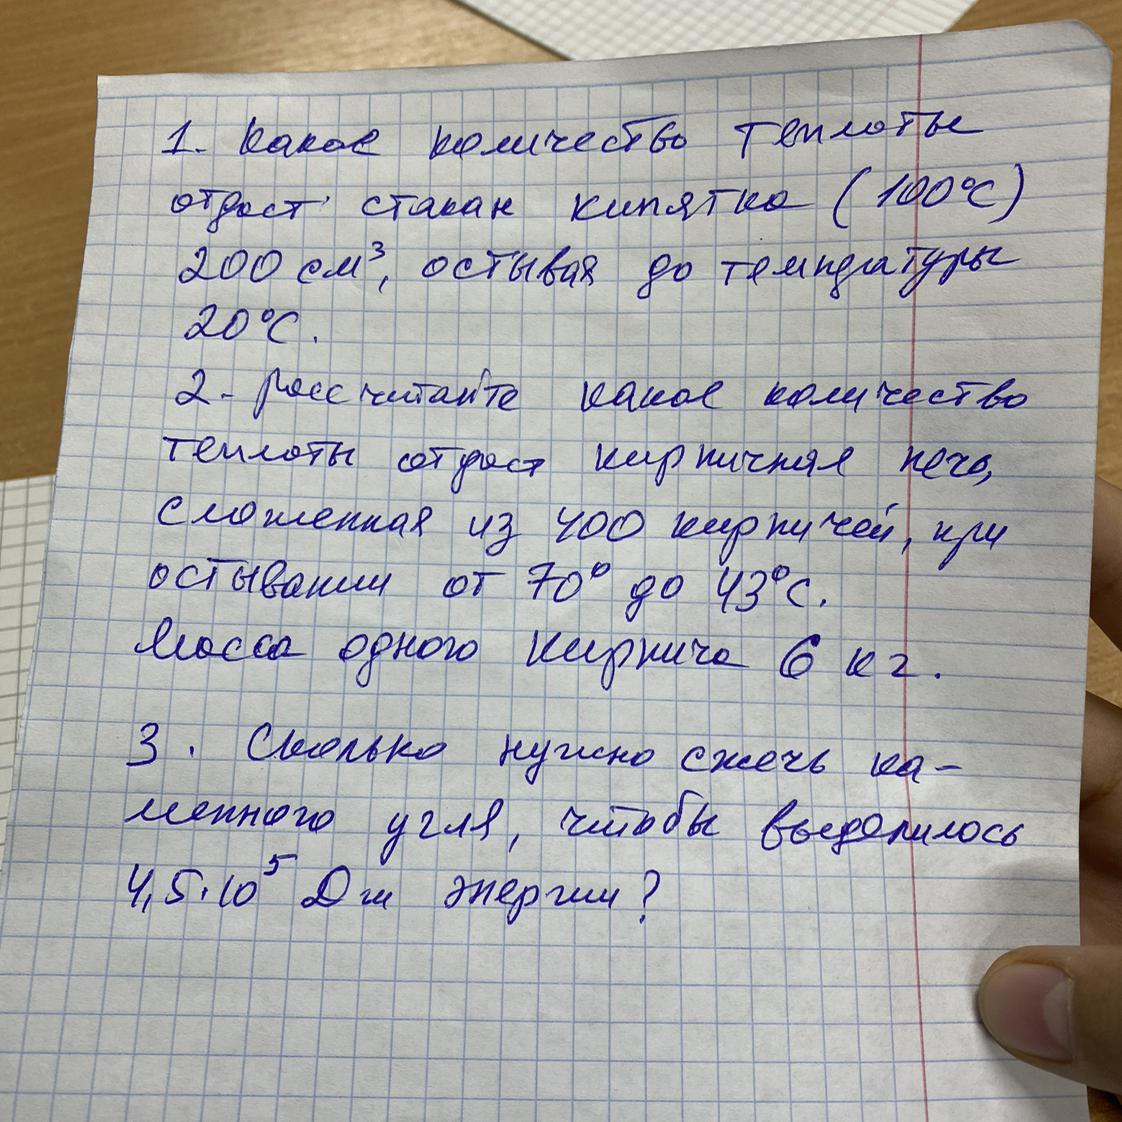 1. Какое количество теплоты
отдаст стакан кипятка (100°С)
200 см³, остывая до температуры
20°С.
2. Рассчитайте какое количество
теплоты отдаст кирпичная печь,
сложенная из 400 кирпичей, при
остывании от 70° до 43°С.
Масса одного кирпича 6 кг.
3. Сколько нужно сжечь ка-
менного угля, чтобы выделилось
4,5·10⁵ Дж энергии?